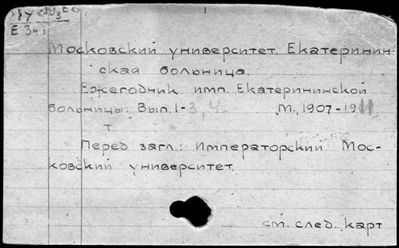 Е 34
Московский университет. Екатеринин-
ская больница.
Ежегодник имп. Екатерининской
больницы. Вып. 1-3, 4 М., 1907-1911
т
Перед загл.: Императорский Мос-
ковский университет.
см. след. карт